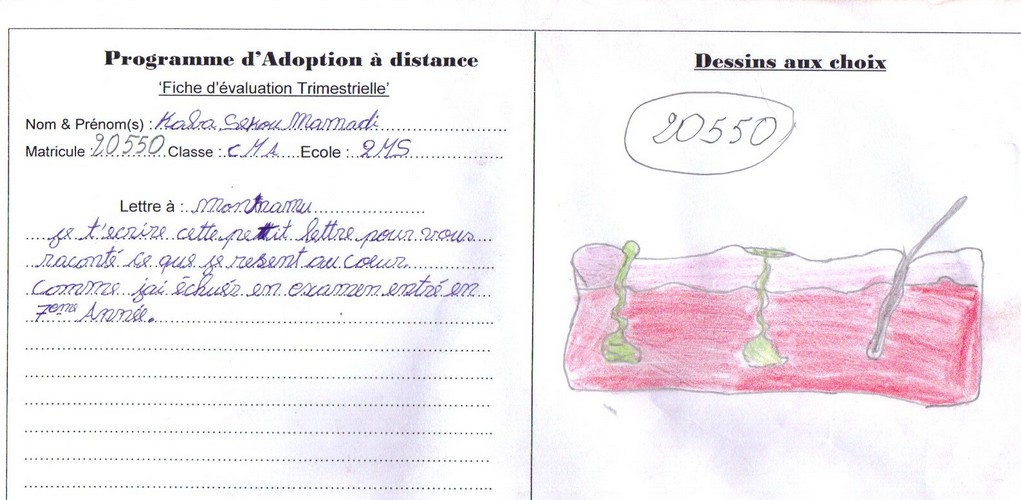 Programme d'Adoption à distance
'Fiche d'évaluation Trimestrielle'
Nom & Prénom(s) : Kaba Sekou Mamadi
Matricule : 20550 Classe : CM2 Ecole : 2MS
Lettre à :
je t'ecrire cette petit lettre pour vous
raconté ce que je resent au coeur
comme j'ai échuér en examen entré en
7eme Année.
Dessins aux choix
20550